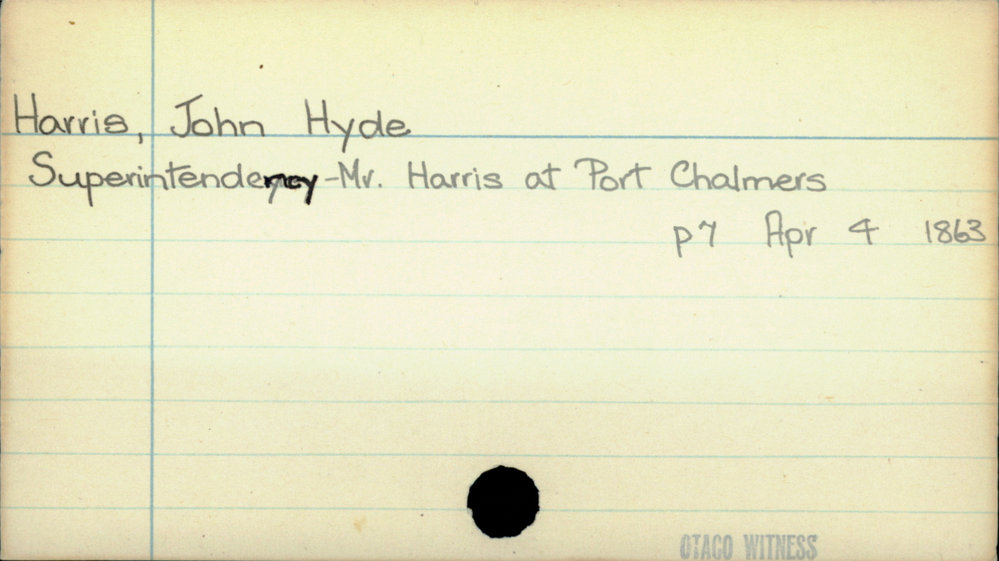 Harris, John Hyde
Superintendency - Mr. Harris at Port Chalmers
p7 Apr 4 1863
OTAGO WITNESS